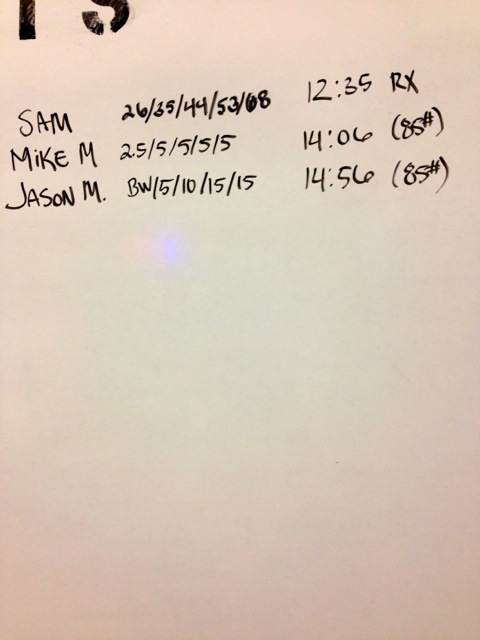 SAM 26/35/44/53/68 12:35 RX
MIKE M 2.5/5/5/5/5 14:06 (85#)
JASON M. BW/5/10/15/15 14:56 (85#)